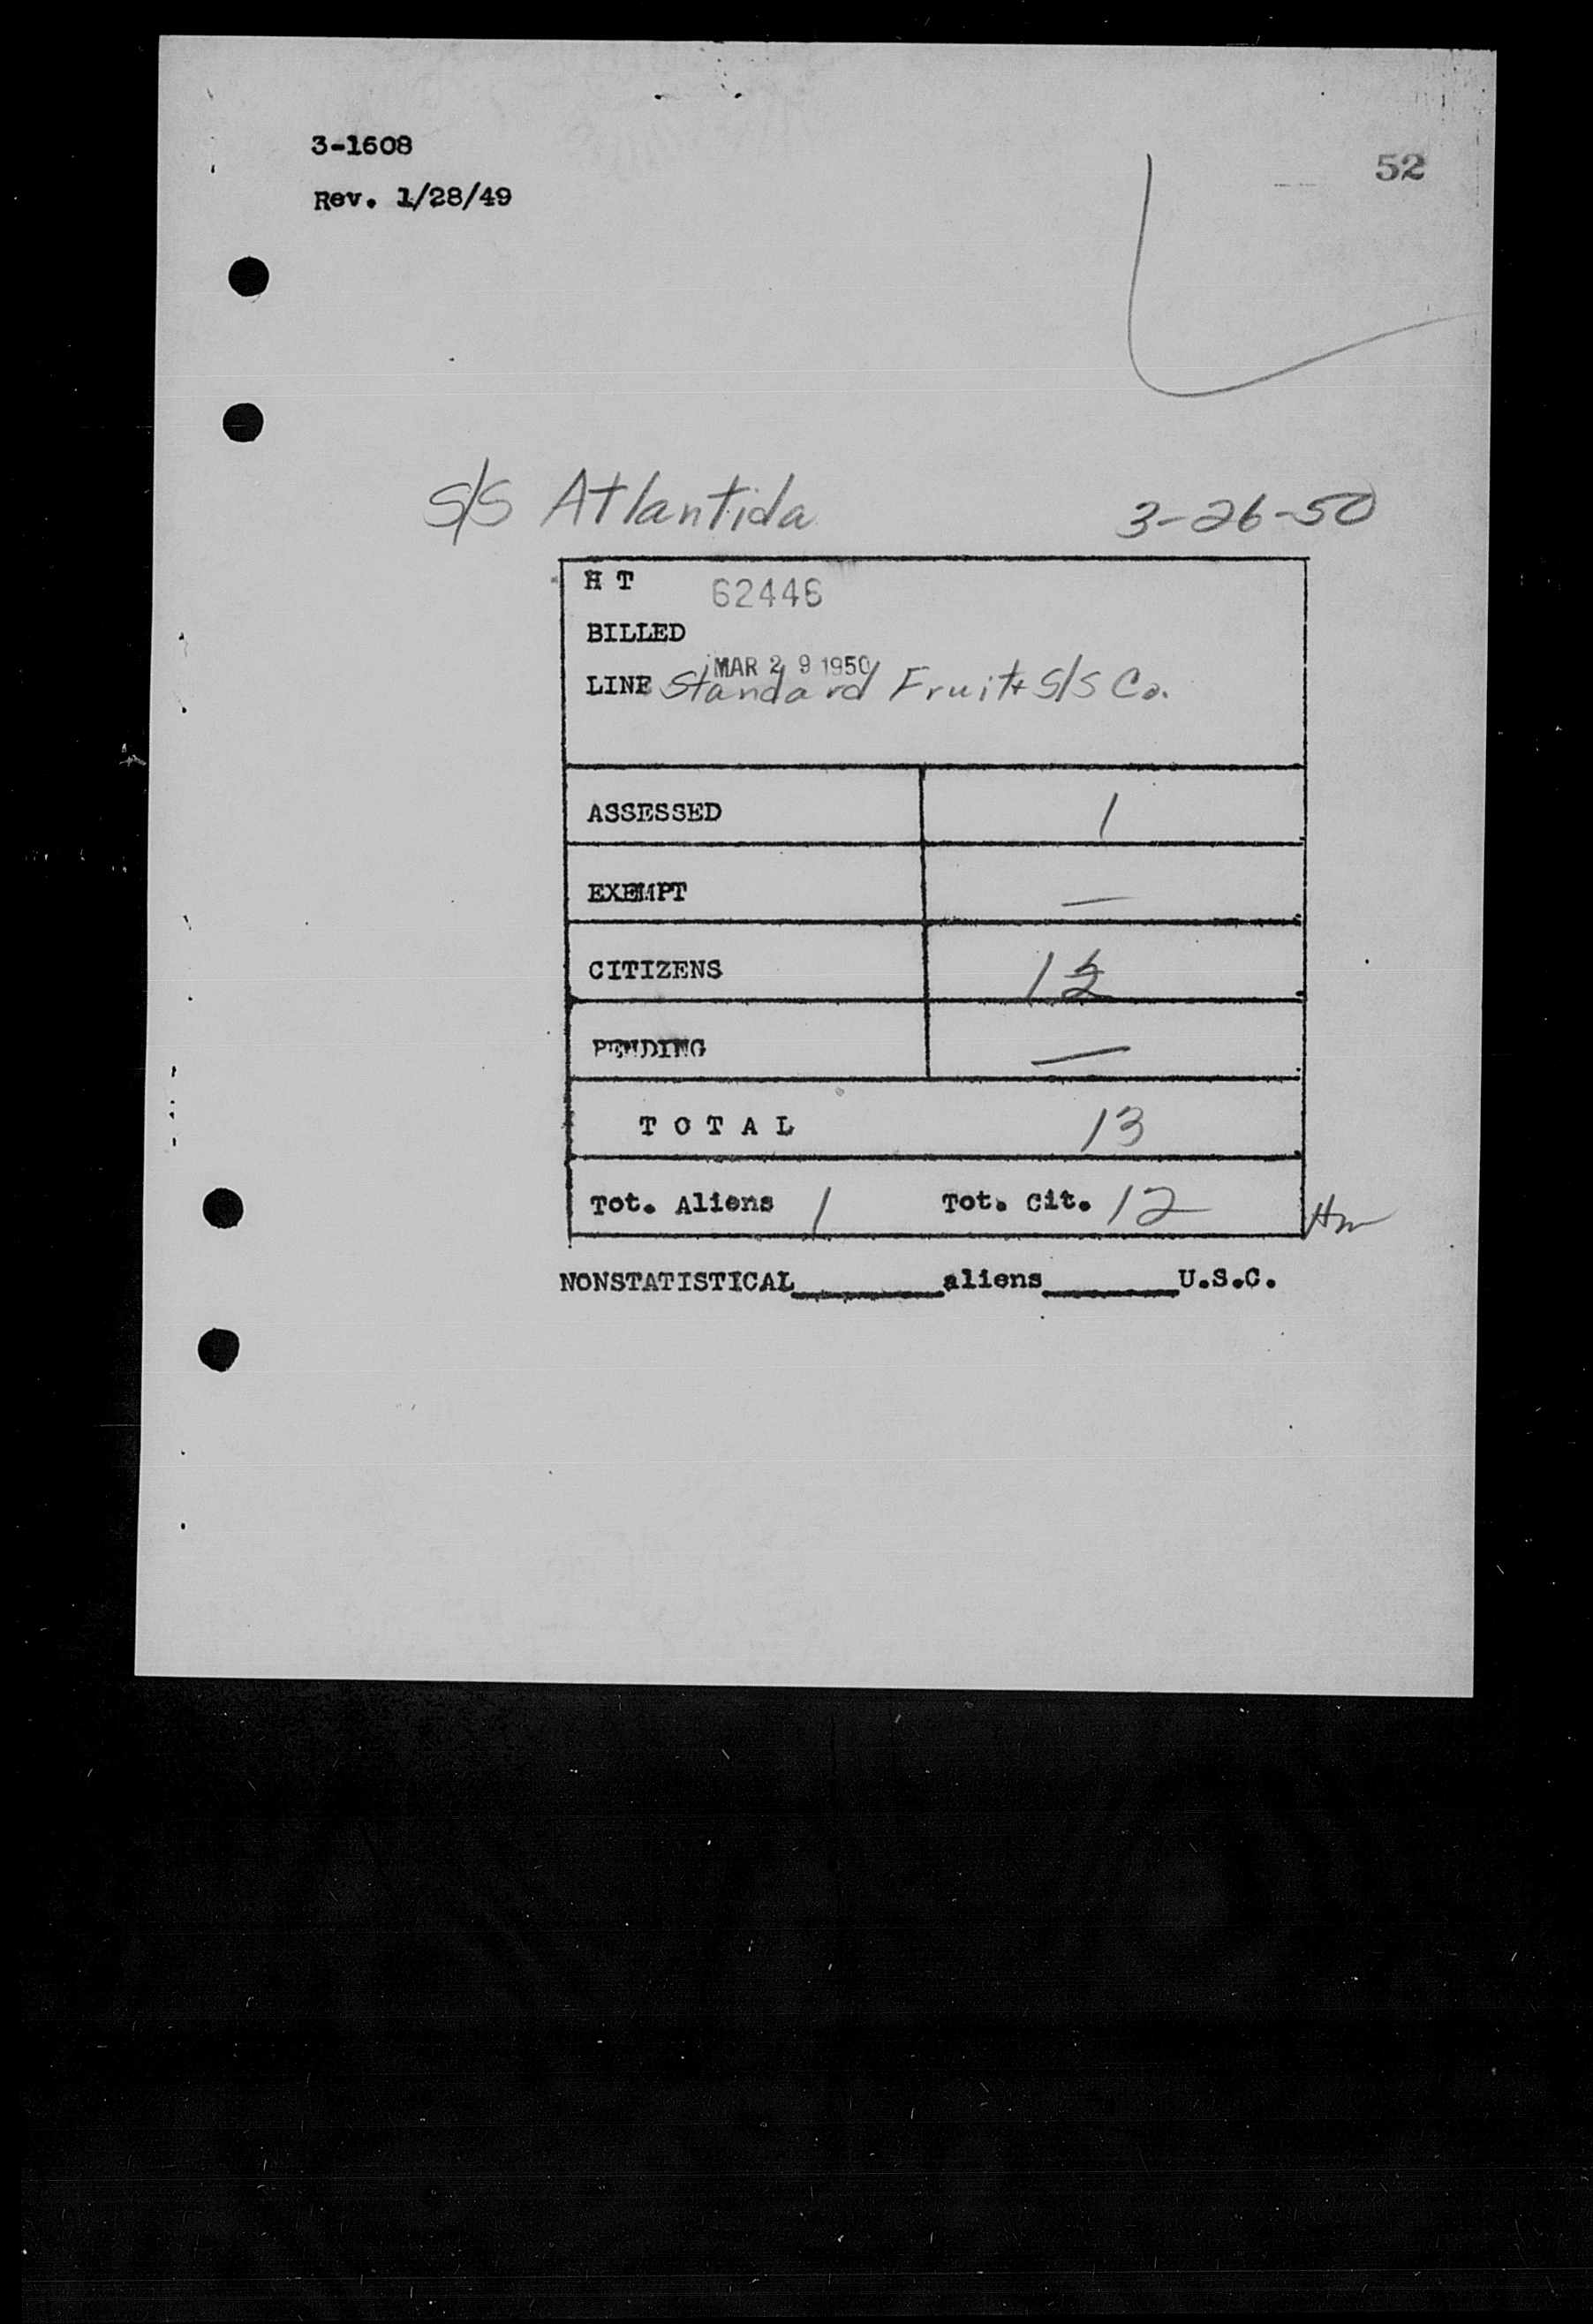 3-1608
52
Rev. 1/28/49
S/S Atlantida 3-26-50
H T 62446
BILLED
MAR 29 1950
LINE Standard Fruit & S/S Co.
ASSESSED 1
EXEMPT —
CITIZENS 12
PENDING —
T O T A L 13
Tot. Aliens 1 Tot. Cit. 12
NONSTATISTICAL________aliens________U.S.C.